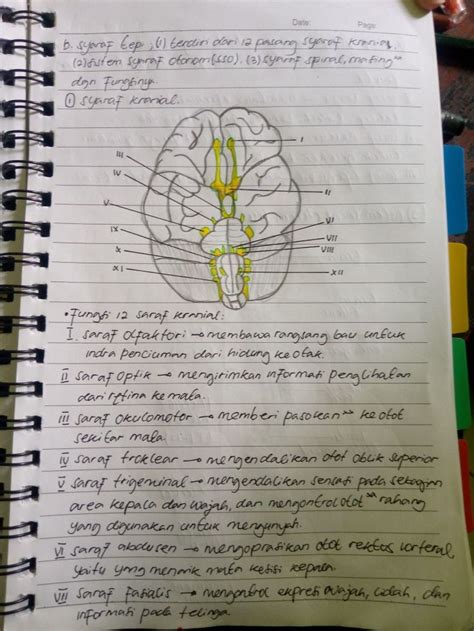 Date: Page:
b. Syaraf tepi, (1) terdiri dari 12 pasang syaraf kranial,
(2) sistem syaraf otonom (SSO). (3) syaraf spiral, masing²
dan fungsinya.
① Syaraf kranial.
III
I
IV
II
V
VI
IX
VII
X
VIII
XI
XII
• Fungsi 12 saraf kranial:
I. saraf olfaktori → membawa rangsang bau untuk
indra penciuman dari hidung ke otak.
II saraf optik → mengirimkan informasi penglihatan
dari retina ke mata.
III saraf okulomotor → memberi pasokan ke otot
sekitar mata.
IV saraf troklear → mengendalikan otot oblik superior
V saraf trigeminal → mengendalikan sensasi pada sebagian
area kepala dan wajah, dan mengontrol otot² rahang
yang digunakan untuk mengunyah.
VI saraf abdusen → mengoprasikan otot rektus
yaitu yang menarik mata kesisi kepala.
VII saraf fasialis → mengontrol expresi wajah, lidah, dan
informasi pada telinga.